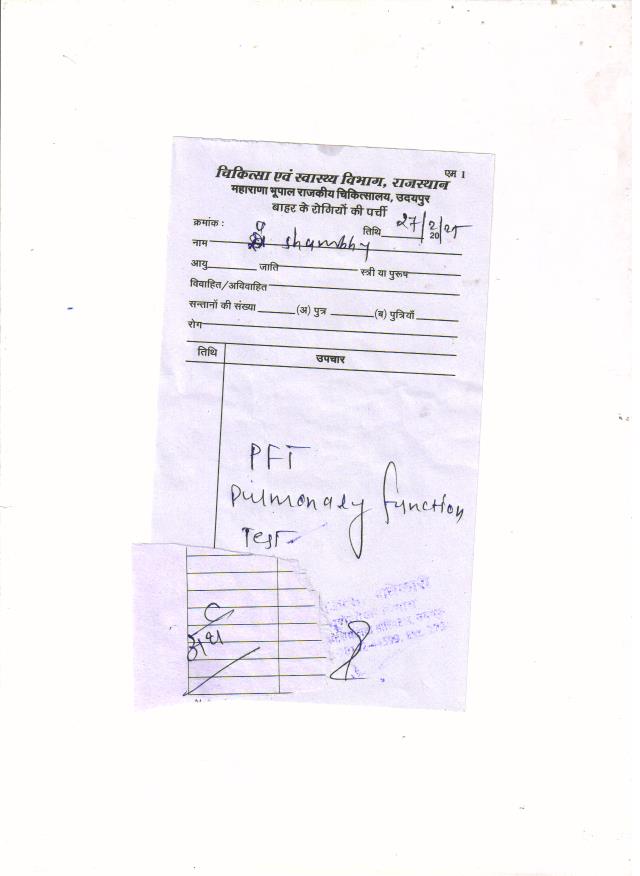 एम 1
चिकित्सा एवं स्वास्थ्य विभाग, राजस्थान
महाराणा भूपाल राजकीय चिकित्सालय, उदयपुर
बाहर के रोगियों की पर्ची
क्रमांक : तिथि 27/2/2025
नाम shambhy
आयु जाति स्त्री या पुरूष
विवाहित/अविवाहित
सन्तानों की संख्या (अ) पुत्र (ब) पुत्रियाँ
रोग
तिथि उपचार
PFT
Pulmonary function
Test